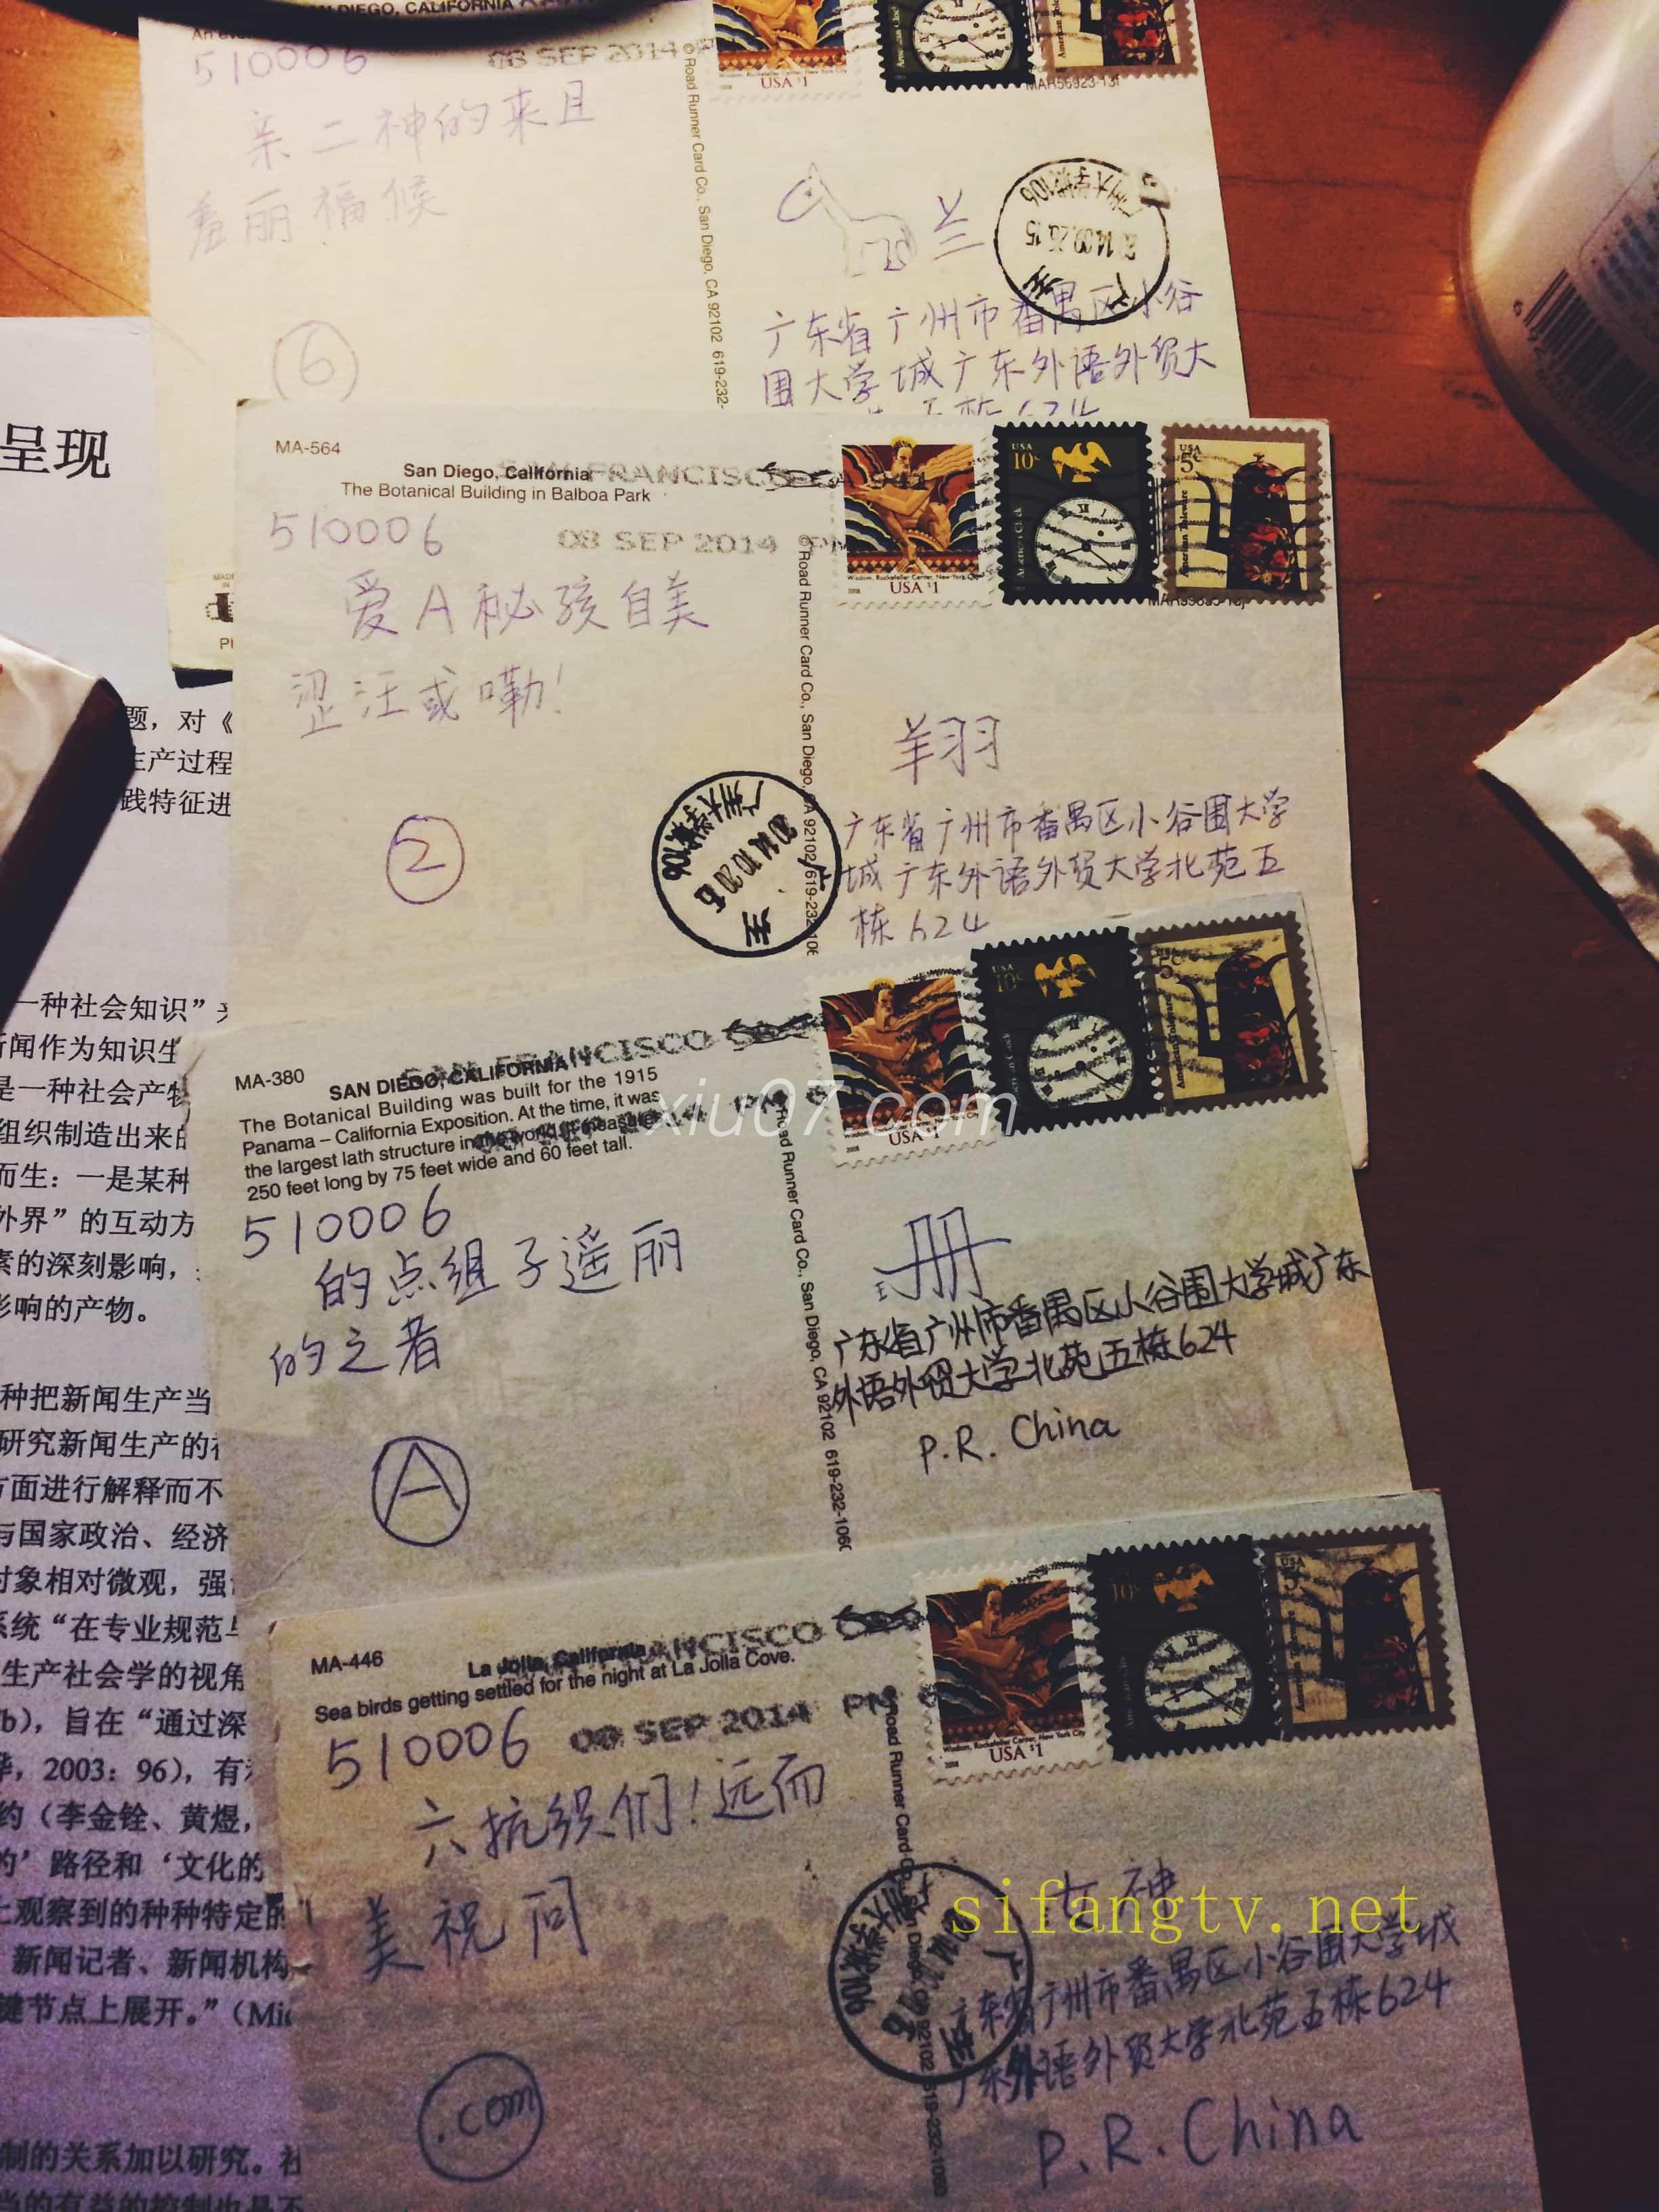 SAN DIEGO, CALIFORNIA
510006
08 SEP 2014
USA $1
亲二神的来且
羞丽福候
⑥
Road Runner Card Co., San Diego, CA 92102 619-232-
兰
广东省广州市番禺区小谷
围大学城广东外语外贸大
呈现
MA-564
San Diego, California
The Botanical Building in Balboa Park
SAN FRANCISCO CA 941
510006
08 SEP 2014 PM
USA 10c
USA 5c
American Clock
American Toleware
Wisdom, Rockefeller Center, New York City
USA $1
爱A秘孩自美
涩汪或嘞!
②
Road Runner Card Co., San Diego, CA 92102 619-232-106
羊羽
广东省广州市番禺区小谷围大学
城广东外语外贸大学北苑五
栋624
题，对《
生产过程
践特征进
一种社会知识”
新闻作为知识生
是一种社会产物
组织制造出来的
而生：一是某种
外界”的互动方
素的深刻影响，
影响的产物。
种把新闻生产当
研究新闻生产的
方面进行解释而不
与国家政治、经济
对象相对微观，强
系统“在专业规范与
生产社会学的视角
b），旨在“通过深
2003：96），有
约（李金铨、黄煜，
的’路径和‘文化的
上观察到的种种特定的
新闻记者、新闻机构
键节点上展开。”（Mi
制的关系加以研究。社
MA-380
SAN DIEGO, CALIFORNIA
SAN FRANCISCO
The Botanical Building was built for the 1915
Panama – California Exposition. At the time, it was
the largest lath structure in the world. It measures
250 feet long by 75 feet wide and 60 feet tall.
xiu07.com
510006
的点组子遥丽
的之者
Ⓐ
Road Runner Card Co., San Diego, CA 92102 619-232-1060
册
广东省广州市番禺区小谷围大学城广东
外语外贸大学北苑五栋624
P.R. China
MA-446
La Jolla, California
Sea birds getting settled for the night at La Jolla Cove.
510006
08 SEP 2014 PM
Wisdom, Rockefeller Center, New York City
USA $1
六抗织们！远而
美祝问
.com
女神
sifangtv.net
广东省广州市番禺区小谷围大学城
广东外语外贸大学北苑五栋624
P.R. China